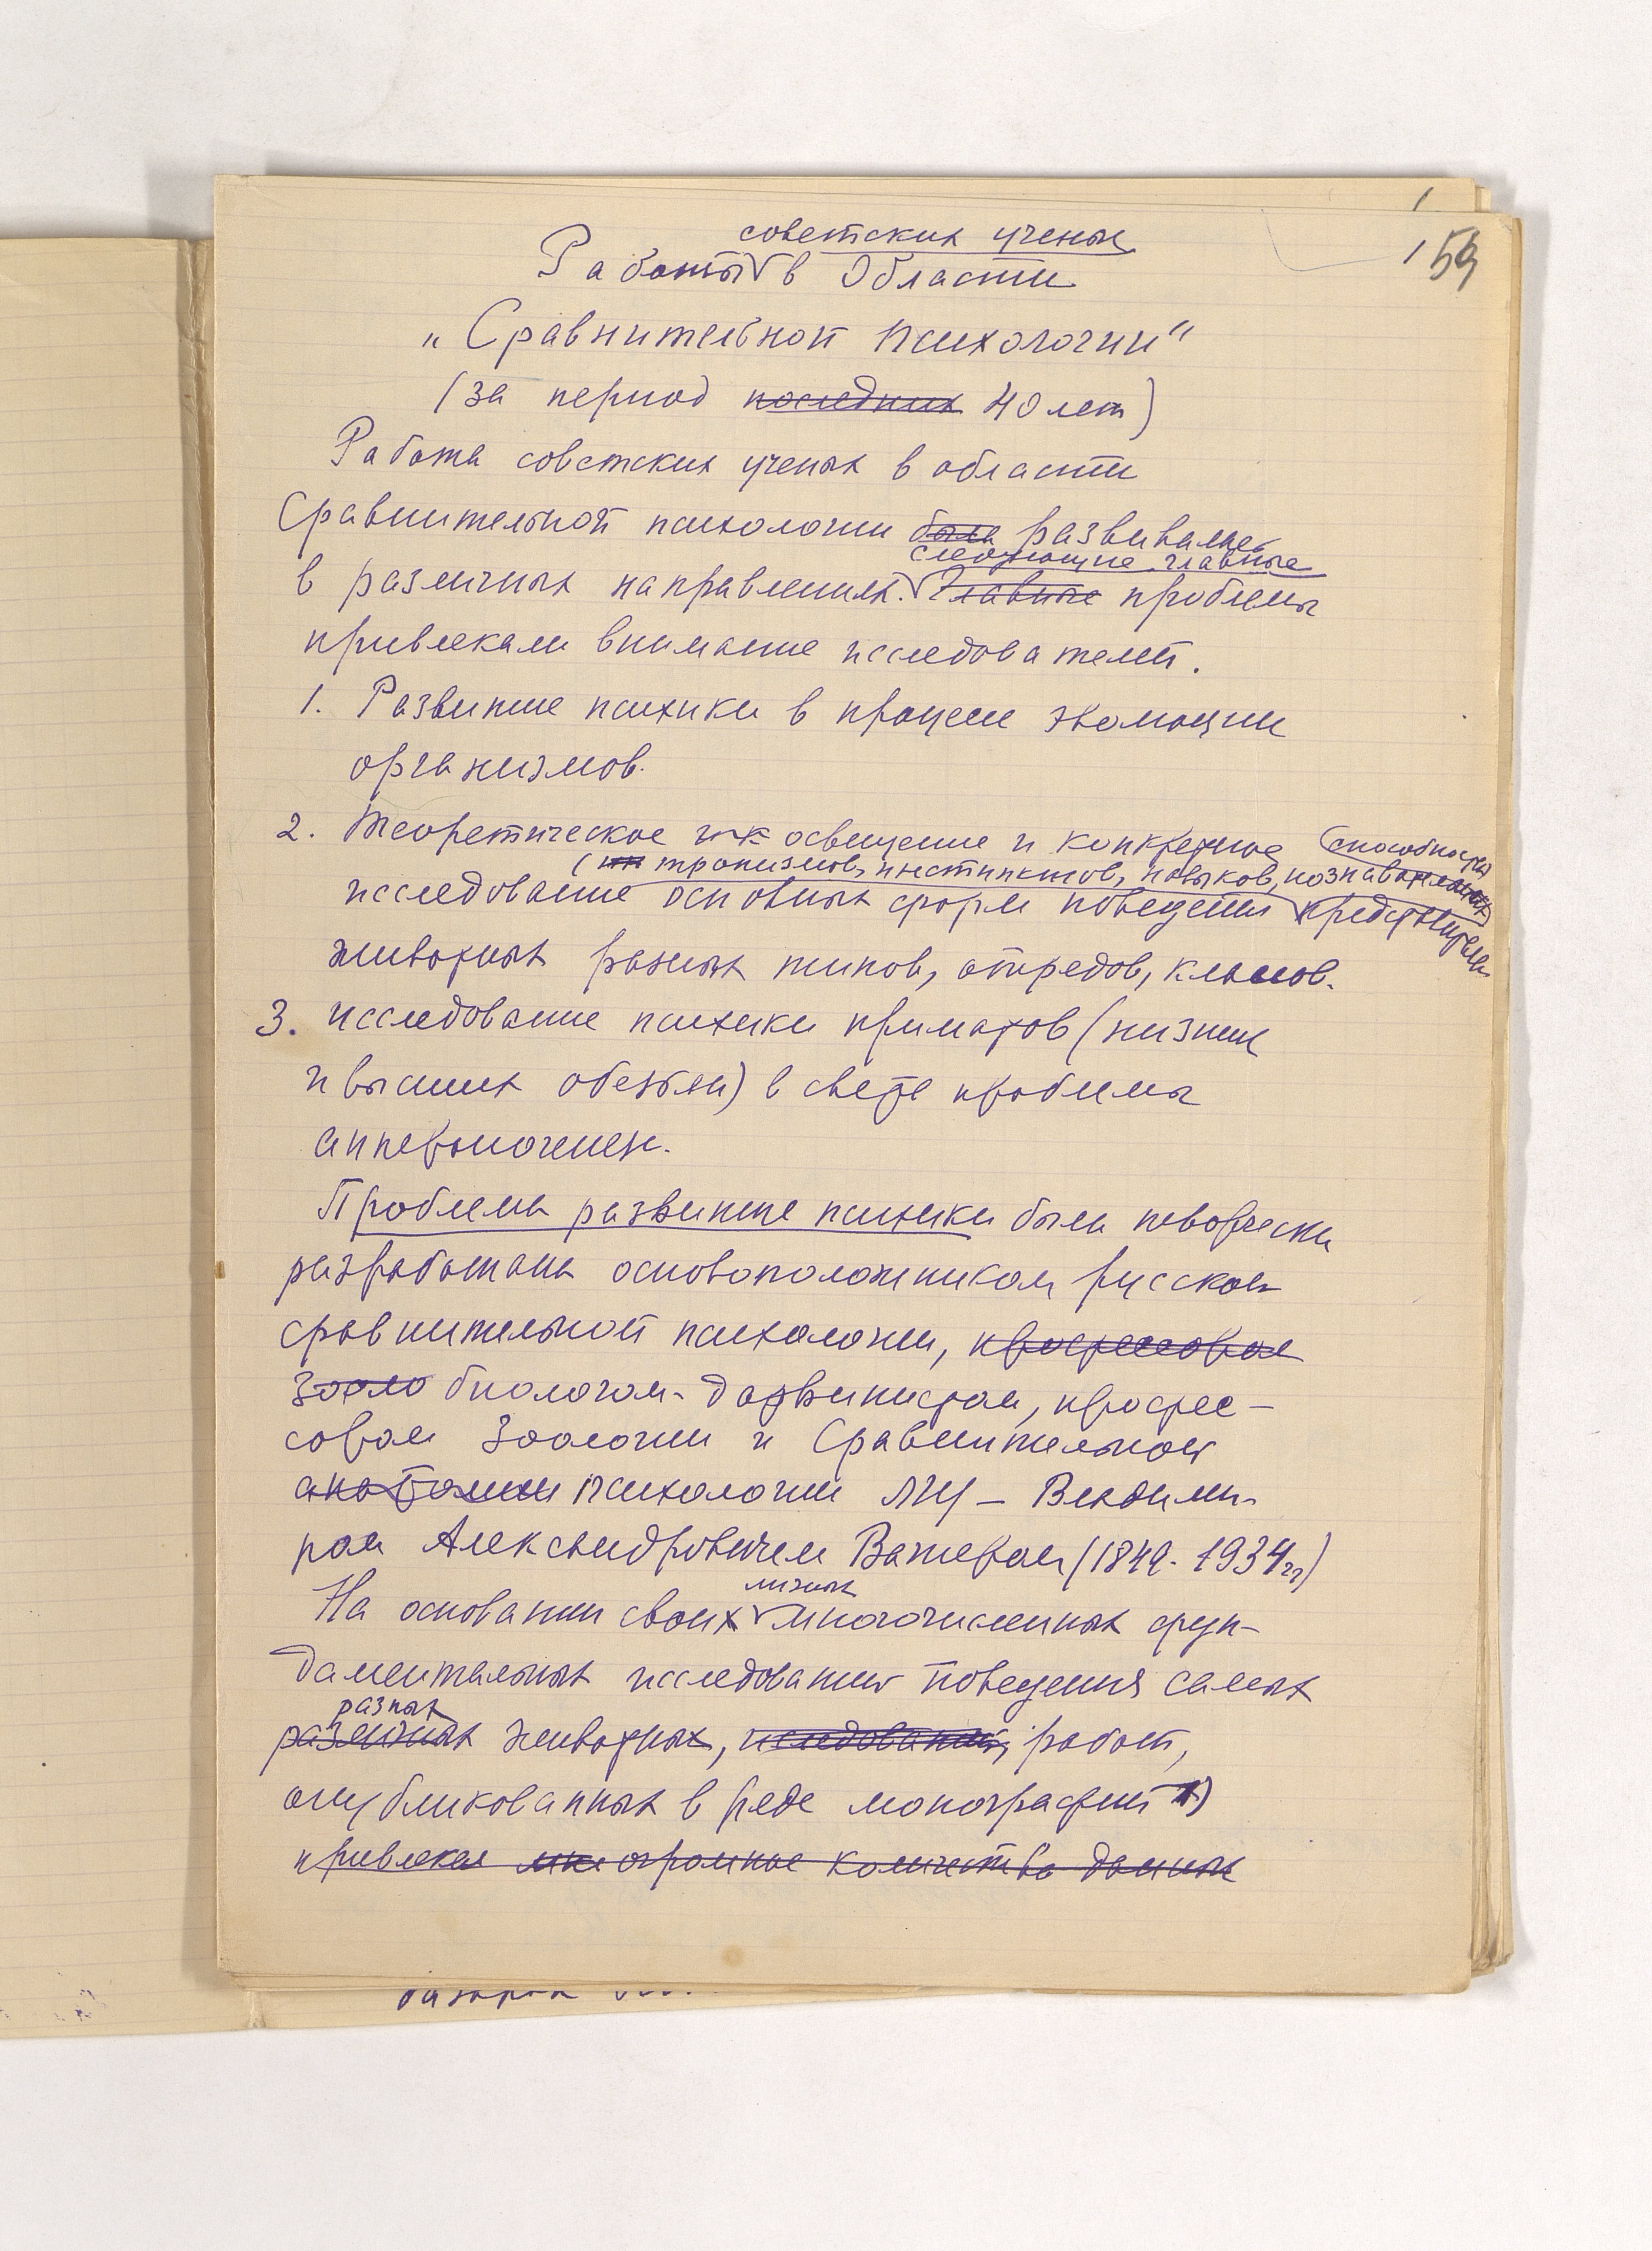 1
59
советских ученых
Работы в Области
„Сравнительной психологии“
(за период последних 40 лет)
Работа советских ученых в области
Сравнительной психологии была развивалась
следующие главные
в различных направлениях. Главные проблемы
привлекали внимание исследователей.
1. Развитие психики в процессе эволюции
организмов.
2. Теоретическое освещение и конкретное
(тропизмов, инстинктов, навыков, познавательных способностей)
исследование основных форм поведения представителей
животных разных типов, отрядов, классов.
3. исследование психики приматов (низших
и высших обезьян) в свете проблемы
антропогенеза.
Проблема развития психики была творчески
разработана основоположником русской
сравнительной психологии, профессором
зооло биологом-дарвинистом, профес-
сором Зоологии и Сравнительной
анатомии психологии ЛГУ – Владими-
ром Александровичем Вагнером (1849-1934 гг)
личных
На основании своих многочисленных фун-
даментальных исследований поведения самых
разных
различных животных, исследований, работ,
опубликованных в ряде монографий 1)
привлекая огромное количество данных